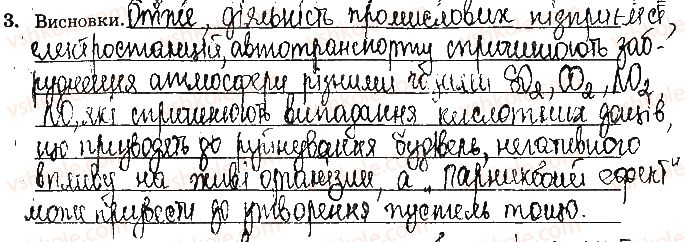 3. Висновки. Отже, діяльність промислових підприємст
електростанцій, автотранспорту спричинюють заб-
руднення атмосфери різними SO2, CO2, NO2,
NO, які спричинюють випадання кислотних дощів,
що приводять до руйнування будівель, негативного
впливу на живі організми, а „парниковий ефект"
може привести до утворення пустель тощо.